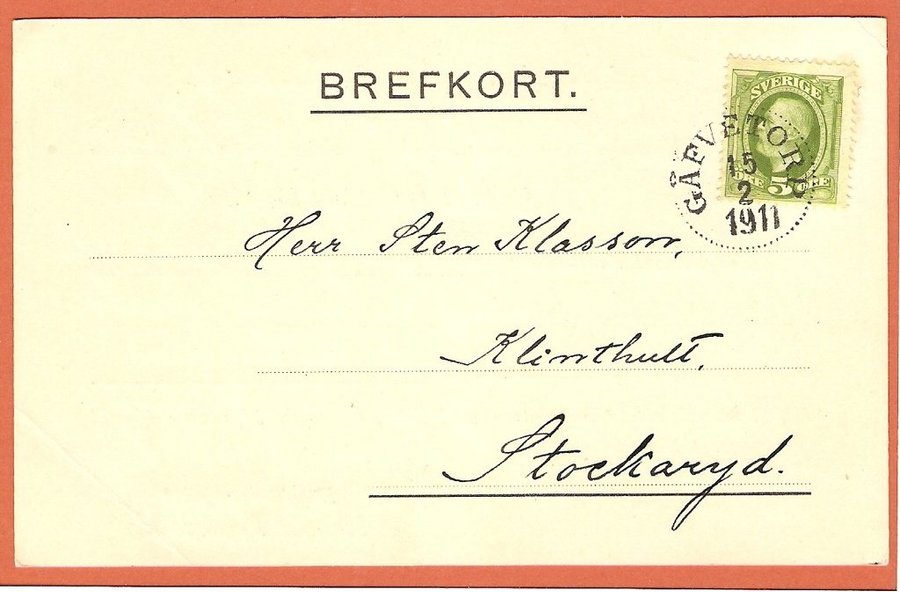 BREFKORT.
SVERIGE
5 ÖRE
GÅFVETORP
15
2
1911
Herr Sten Klasson,
Klinthult,
Stockaryd.